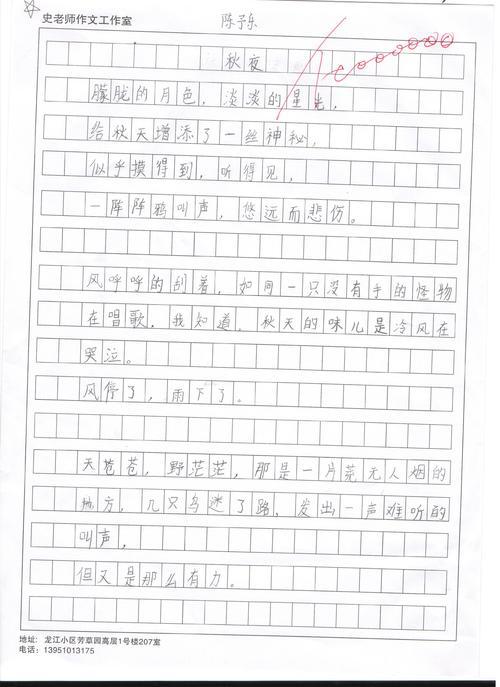 史老师作文工作室
陈子东
秋夜
朦胧的月色，淡淡的星光，
给秋天增添了一丝神秘，
似乎摸得到，听得见，
一阵阵鸦叫声，悠远而悲伤。
风呼呼的刮着，如同一只没有手的怪物
在唱歌，我知道，秋天的味儿是冷风在
哭泣。
风停了，雨下了。
天苍苍，野茫茫，那是一片荒无人烟的
地方，几只乌迷了路，发出一声难听的
叫声，
但又是那么有力。
地址：龙江小区芳草园高层1号楼207室
电话：13951013175